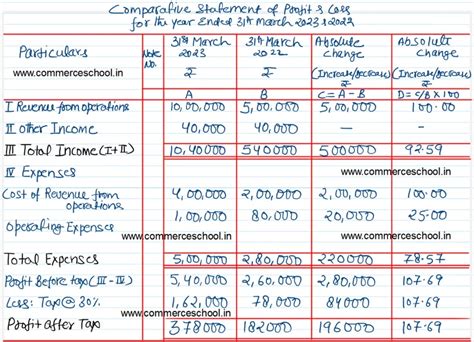 Comparative Statement of Profit & Loss
for the year Ended 31st March 2023 & 2022
Particulars Note No. 31st March 2023 ₹ 31st March 2022 ₹ Absolute change (Increase/Decrease) ₹ Absolute change (Increase/Decrease) ₹
www.commerceschool.in www.commerceschool.in
A B C = A - B D = C/B X 100
I Revenue from operations 10,00,000 5,00,000 5,00,000 100.00
II Other Income 40,000 40,000 — —
III Total Income (I+II) 10,40000 540000 500000 92.59
IV Expenses www.commerceschool.in
Cost of Revenue from operations 4,00,000 2,00,000 2,00,000 100.00
Operating Expenses 1,00,000 80,000 20,000 25.00
www.commerceschool.in www.commerceschool.in
Total Expenses 5,00,000 2,80,000 220000 78.57
Profit Before tax (III-IV) 5,40,000 2,60,000 2,80,000 107.69
Less: Tax @ 30% 1,62,000 78,000 84000 107.69
www.commerceschool.in
Profit after Tax 378000 182000 196000 107.69